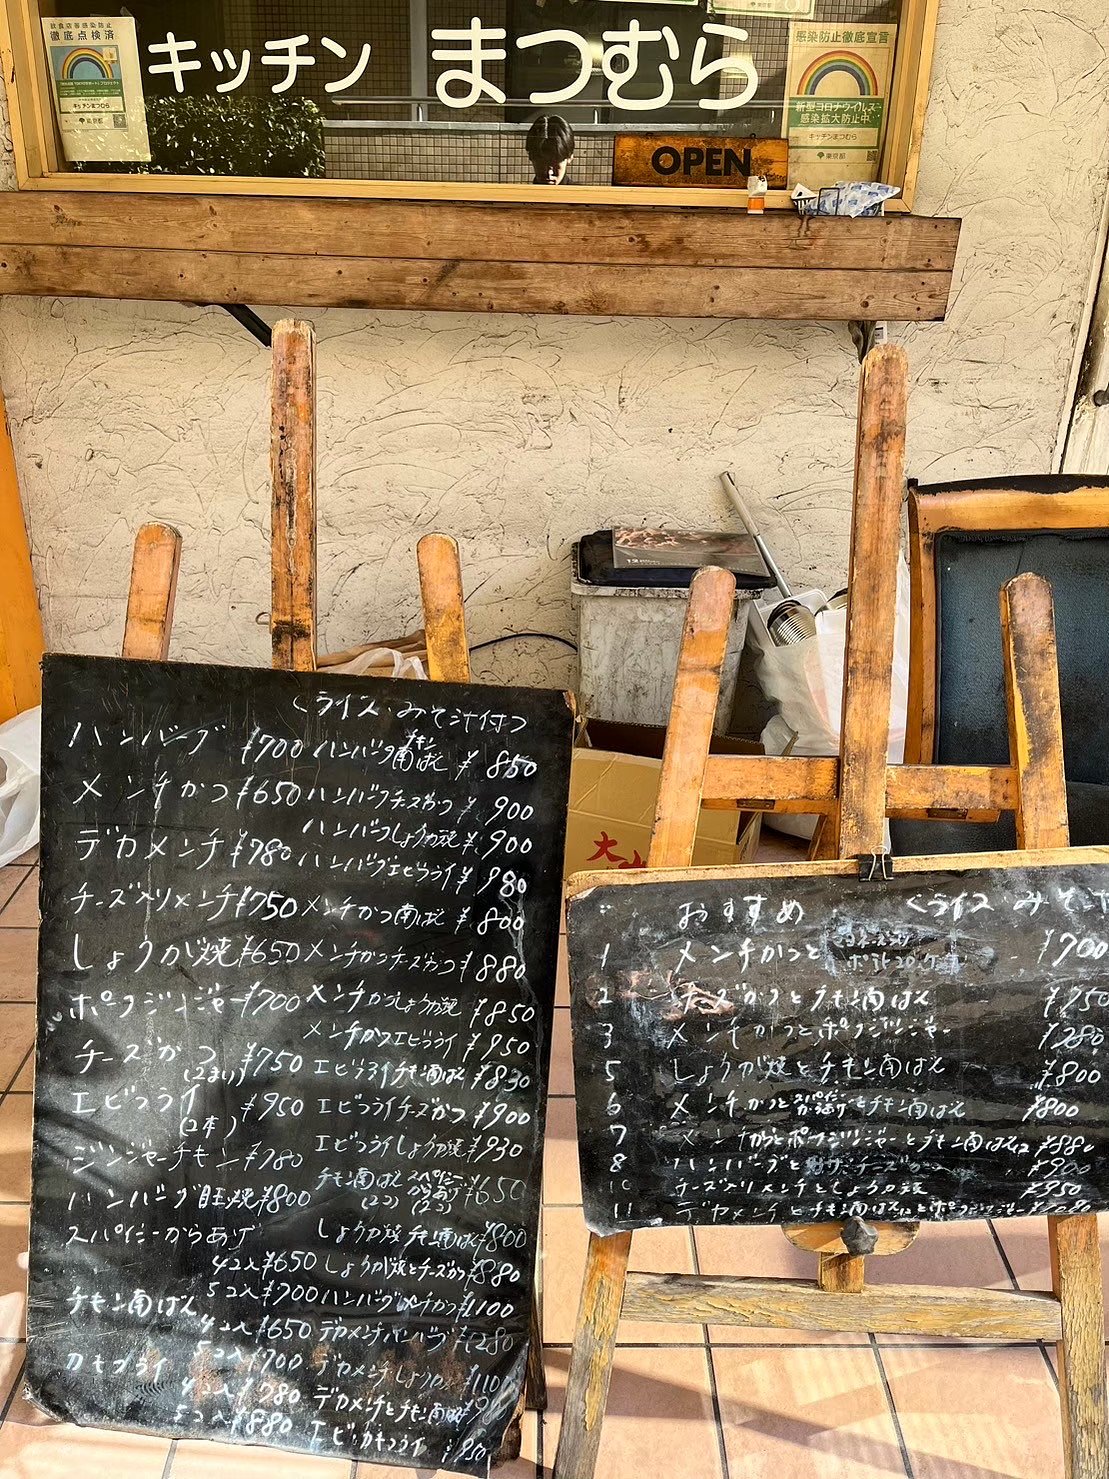 飲食店等感染防止
徹底点検済
キッチンまつむら
東京都
キッチン まつむら
OPEN
東京都
感染防止徹底宣言
新型コロナウイルス
感染拡大防止中
キッチンまつむら
東京都
大
くライス・みそ汁付つ
ハンバーグ ¥700
メンチかつ ¥650
デカメンチ ¥780
チーズ入りメンチ ¥750
しょうが焼 ¥650
ポークジンジャー ¥700
チーズかつ ¥750
(2まい)
エビフライ ¥950
(2本)
ジンジャーチキン ¥780
ハンバーグ目玉焼 ¥800
スパイシーからあげ
4コ入 ¥650
5コ入 ¥700
チキン南ばん
4コ入 ¥650
5コ入 ¥700
カキフライ
4コ入 ¥780
5コ入 ¥880
ハンバーグチキン南ばん ¥850
ハンバーグチーズかつ ¥900
ハンバーグしょうが焼 ¥900
ハンバーグエビフライ ¥980
メンチかつ南ばん ¥800
メンチかつチーズかつ ¥880
メンチかつしょうが焼 ¥850
メンチかつエビフライ ¥950
エビフライチキン南ばん ¥830
エビフライチーズかつ ¥900
エビフライしょうが焼 ¥930
チキン南ばん スパイシーからあげ ¥650
(2コ) (2コ)
しょうが焼 チキン南ばん ¥800
しょうが焼とチーズかつ ¥880
ハンバーグメンチかつ ¥1100
デカメンチハンバーグ ¥1280
デカメンチしょうが ¥110
デカメンチとチキン南ばん
エビ・カキフライ ¥950
おすすめ くライス みそ汁
1 メンチかつと ポテトコロッケ ¥700
2 チーズかつとチキン南ばん ¥750
3 メンチかつとポークジンジャー ¥780
5 しょうが焼とチキン南ばん ¥800
6 メンチかつとスパイシーからあげとチキン南ばん ¥800
7 メンチかつとポークジンジャーとチキン南ばん ¥980
8 ハンバーグと チーズかつ ¥900
10 チーズ入りメンチとしょうが焼 ¥950
11 デカメンチとチキン南ばんとポークジンジャー